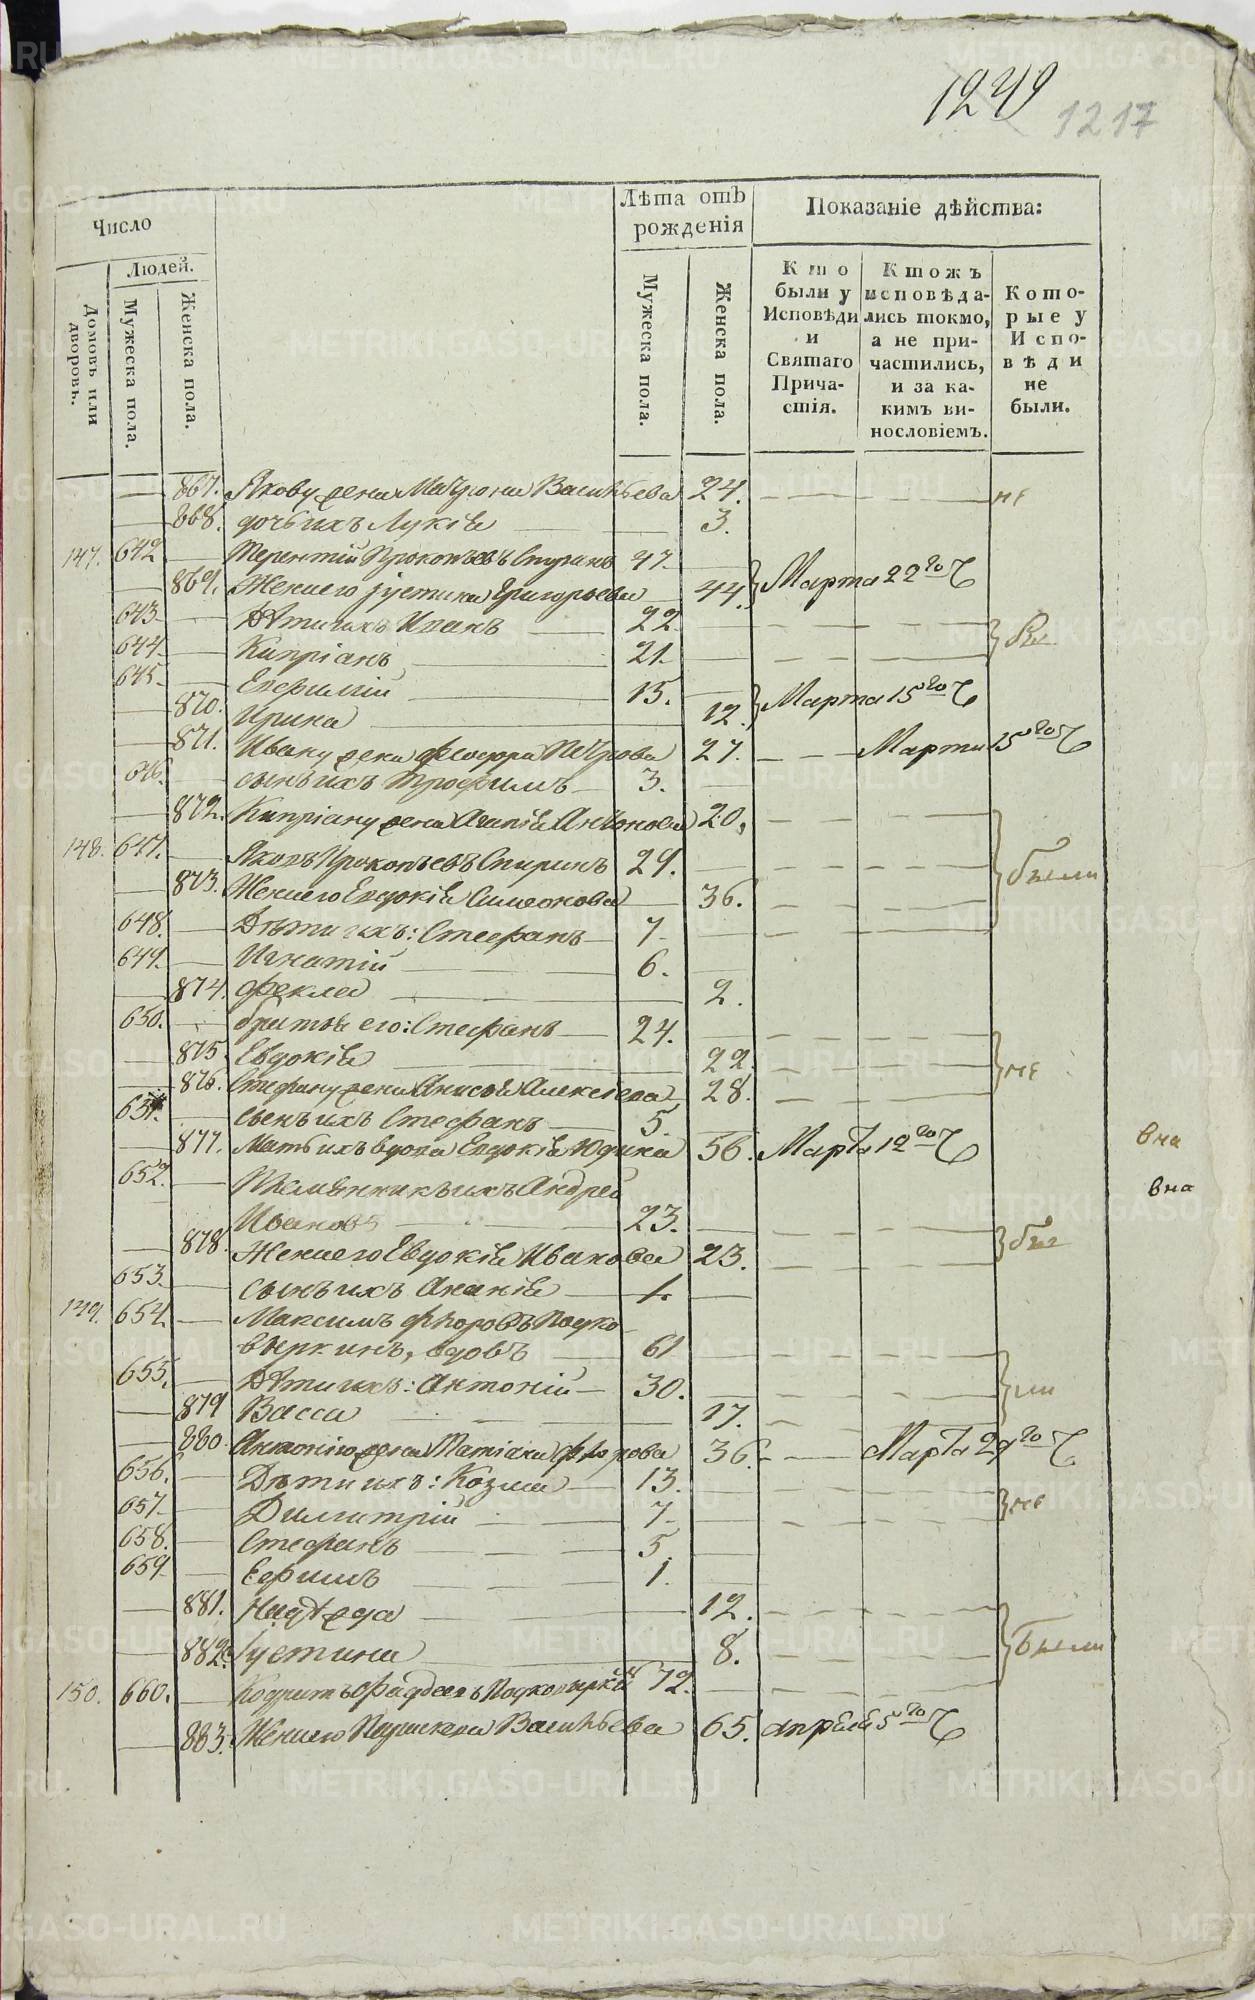 1249
1217
Число
Людей.
Домовъ или дворовъ.
Мужеска пола.
Женска пола.
Лѣта отъ рожденія
Мужеска пола.
Женска пола.
Показаніе дѣйства:
Кто были у Исповѣди и Святаго Причастія.
Ктожъ исповѣдались токмо, а не причастились, и за какимъ винословіемъ.
Которые у Исповѣди не были.
867. Якову жена Матрона Васильева 24. не
868. дочь ихъ Лукія 3.
147. 642 Терентій Прокопьевъ Спиринъ 47.
869. Жена его Іустина Григорьева 44. Марта 22го Ч
643 Дѣти ихъ Иванъ 22
644 Кипріанъ 21.
645 Евфимій 15.
870. Ирина 12. Марта 15го Ч
871. Ивану жена Феодора Петрова 27. Марта 15го Ч
646. сынъ ихъ Трофимъ 3.
872. Кипріану жена Агапія Антонова 20.
148. 647. Яковъ Прокопьевъ Спиринъ 29.
873. Жена его Евдокія Симеонова 36. были
648. Дѣти ихъ: Стефанъ 7
649. Игнатій 6.
874. Фекла 2.
650. братья его: Стефанъ 24.
875. Евдокія 22
876. Стефану жена Анисья Алексѣева 28. не
651. сынъ ихъ Стефанъ 5
877. Мать ихъ вдова Евдокія Юдина 56. Марта 12го Ч
652. Племянникъ ихъ Андрей
Ивановъ 23.
878. Жена его Евдокія Иванова 23.
653. сынъ ихъ Ананія 1.
149. 654. Максимъ Ѳедоровъ Подко
выркинъ, вдовъ 61
655. Дѣти ихъ: Антоній 30.
879 Васса 17.
880. Антонію жена Татіана 36. Марта 29го Ч
656. Дѣти ихъ: Козма 13.
657. Димитрій 7 не
658. Стефанъ 5
659 Ефимъ 1.
881. Надежда 12.
882. Іустина 8. были
150. 660. Кодратъ Фаддеевъ 72.
883. Жена его Параскева Васильева 65. апрѣля 5го Ч
вна
вна
METRIKI.GASO-URAL.RU